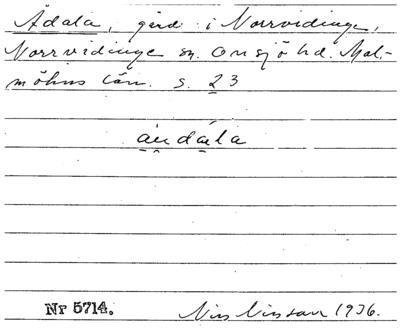 Ådala, gård i Norrvidinge,
Norrvidinge sn. Onsjö hd. Mal-
möhus län. s. 23
àu dala
Nr 5714.
Nils Nilsson 1936.